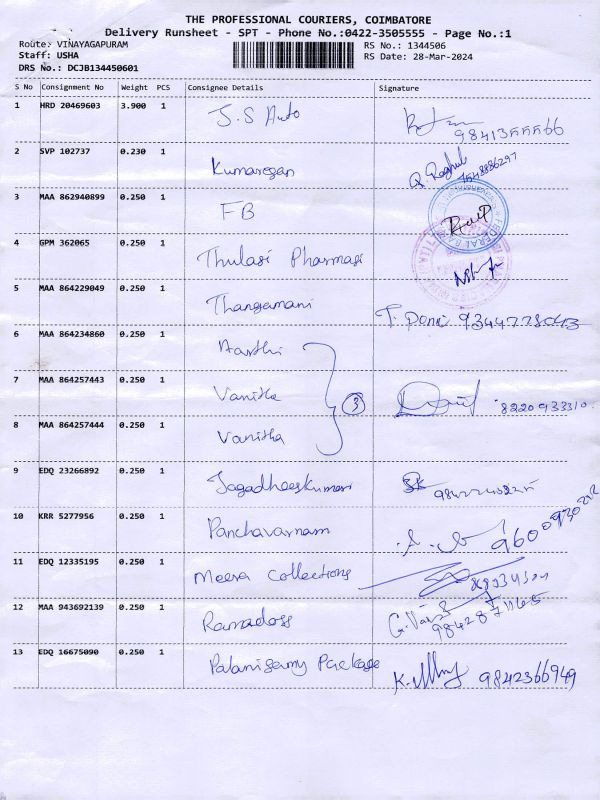 THE PROFESSIONAL COURIERS, COIMBATORE
Delivery Runsheet - SPT - Phone No.:0422-3505555 - Page No.:1
Route: VINAYAGAPURAM RS No.: 1344506
Staff: USHA RS Date: 28-Mar-2024
DRS No.: DCJB134450601
S No Consignment No Weight PCS Consignee Details Signature
1 HRD 20469603 3.900 1 J.S Auto
2 SVP 102737 0.230 1 Kumaresan
3 MAA 862940899 0.250 1 FB
4 GPM 362065 0.250 1 Thulasi Pharmasi
5 MAA 864229049 0.250 1 Thangamani
6 MAA 864234860 0.250 1 Aarthi
7 MAA 864257443 0.250 1 Vanitha 3 8220933310
8 MAA 864257444 0.250 1 Vanitha
9 EDQ 23266892 0.250 1 Jagadheeskumari
10 KRR 5277956 0.250 1 Panchavarnam
11 EDQ 12335195 0.250 1 Meera Collections
12 MAA 943692139 0.250 1 Ramadoss
13 EDQ 16675090 0.250 1 Palanisamy Package 9842366949